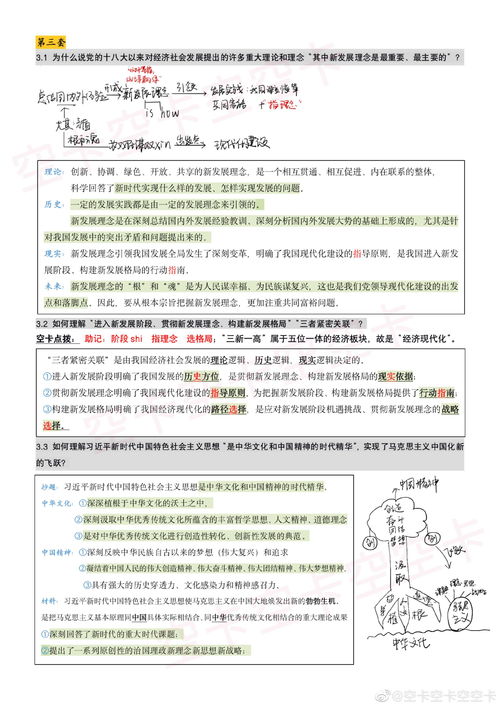 第三套
3.1 为什么说党的十八大以来对经济社会发展提出的许多重大理论和理念“其中新发展理念是最重要、最主要的”？
形成
新发展理念
引领
is how
理论：创新、协调、绿色、开放、共享的新发展理念，是一个相互贯通、相互促进、内在联系的整体，
科学回答了新时代实现什么样的发展、怎样实现发展的问题。
历史：一定的发展实践都是由一定的发展理念来引领的。
新发展理念是在深刻总结国内外发展经验教训、深刻分析国内外发展大势的基础上形成的，尤其是针
对我国发展中的突出矛盾和问题提出来的。
现实：新发展理念引领我国发展全局发生了深刻变革，明确了我国现代化建设的指导原则，是我国进入新发
展阶段、构建新发展格局的行动指南。
未来：新发展理念的“根”和“魂”是为人民谋幸福、为民族谋复兴，这也是我们党领导现代化建设的出发
点和落脚点。因此，要从根本宗旨把握新发展理念，更加注重共同富裕问题。
3.2 如何理解“进入新发展阶段、贯彻新发展理念、构建新发展格局”“三者紧密关联”？
空卡点拨：助记：阶段 shi 指理念 选格局；“三新一高”属于五位一体的经济板块，故是“经济现代化”。
“三者紧密关联”是由我国经济社会发展的理论逻辑、历史逻辑、现实逻辑决定的。
①进入新发展阶段明确了我国发展的历史方位，是贯彻新发展理念、构建新发展格局的现实依据；
②贯彻新发展理念明确了我国现代化建设的指导原则，为把握新发展阶段、构建新发展格局提供了行动指南；
③构建新发展格局明确了我国经济现代化的路径选择，是应对新发展阶段机遇挑战、贯彻新发展理念的战略
选择。
3.3 如何理解习近平新时代中国特色社会主义思想“是中华文化和中国精神的时代精华”，实现了马克思主义中国化新
的飞跃？
抄题：习近平新时代中国特色社会主义思想是中华文化和中国精神的时代精华。
中华文化：①深深植根于中华文化的沃土之中，
②深刻汲取中华优秀传统文化所蕴含的丰富哲学思想、人文精神、道德理念
③是对中华优秀传统文化进行创造性转化、创新性发展的典范。
中国精神：①深刻反映中华民族自古以来的梦想（伟大复兴）和追求
②凝结着中国人民的伟大创造精神、伟大奋斗精神、伟大团结精神、伟大梦想精神，
③具有强大的历史穿透力、文化感染力和精神感召力。
材料：习近平新时代中国特色社会主义思想使马克思主义在中国大地焕发出新的勃勃生机，
是把马克思主义基本原理同中国具体实际相结合、同中华优秀传统文化相结合的重大理论成果
①深刻回答了新时代的重大时代课题；
②提出了一系列原创性的治国理政新理念新思想新战略；
中国精神
创造
奋斗
团结
梦想
汲取
根
中华文化
@空卡空卡空空卡